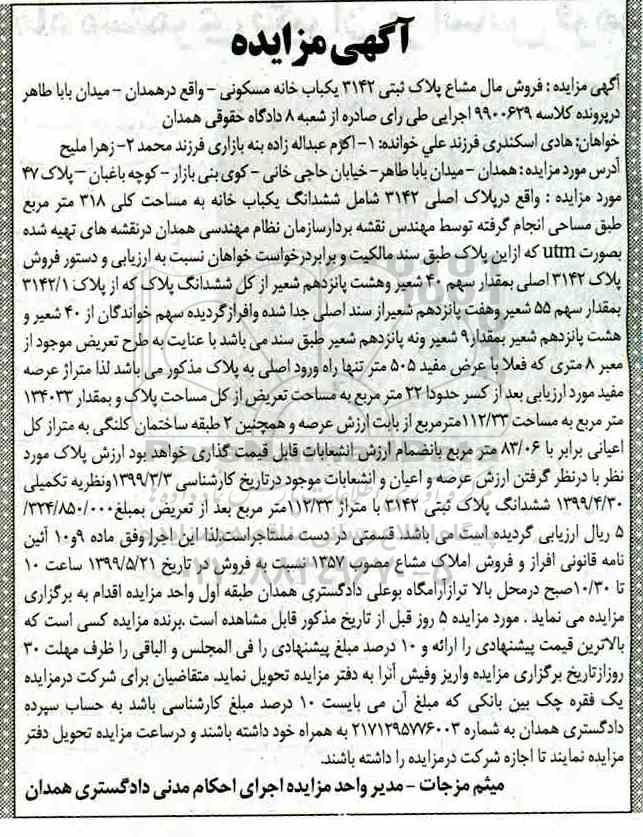 آگهی مزایده
آگهی مزایده : فروش مال مشاع پلاک ثبتی ۳۱۴۲ یکباب خانه مسکونی - واقع درهمدان - میدان بابا طاهر
درپرونده کلاسه ۹۹۰۰۶۲۹ اجرایی طی رای صادره از شعبه ۸ دادگاه حقوقی همدان
خواهان: هادی اسکندری فرزند علي خوانده: ۱- اکرم عبداله زاده بنه بازاری فرزند محمد ۲- زهرا ملیح
آدرس مورد مزایده : همدان - میدان بابا طاهر- خیابان حاجی خانی - کوی بنی بازار - کوچه باغبان – پلاک ۴۷
مورد مزایده : واقع درپلاک اصلی ۳۱۴۲ شامل ششدانگ یکباب خانه به مساحت کلی ۳۱۸ متر مربع
طبق مساحی انجام گرفته توسط مهندس نقشه بردارسازمان نظام مهندسی همدان درنقشه های تهیه شده
بصورت utm که ازاین پلاک طبق سند مالکیت و برابردرخواست خواهان نسبت به ارزیابی و دستور فروش
پلاک ۳۱۴۲ اصلی بمقدار سهم ۴۰ شعیر وهشت پانزدهم شعیر از کل ششدانگ پلاک که از پلاک ۳۱۴۲/۱
بمقدار سهم ۵۵ شعیر وهفت پانزدهم شعیراز سند اصلی جدا شده وافرازگردیده سهم خواندگان از ۴۰ شعیر و
هشت پانزدهم شعیر بمقدار۹ شعیر ونه پانزدهم شعیر طبق سند می باشد با عنایت به طرح تعریض موجود از
معبر ۸ متری که فعلا با عرض مفید ۵۰۵ متر تنها راه ورود اصلی به پلاک مذکور می باشد لذا متراژ عرصه
مفید مورد ارزیابی بعد از کسر حدودا ۲۲ متر مربع به مساحت تعریض از کل مساحت پلاک و بمقدار ۱۳۴۰۳۳
متر مربع به مساحت ۱۱۲/۳۳مترمربع از بابت ارزش عرصه و همچنین ۲ طبقه ساختمان کلنگی به متراژ کل
اعیانی برابر با ۸۳/۰۶ متر مربع بانضمام ارزش انشعابات قابل قیمت گذاری خواهد بود ارزش پلاک مورد
نظر با درنظر گرفتن ارزش عرصه و اعیان و انشعابات موجود درتاریخ کارشناسی ۱۳۹۹/۳/۳ونظریه تکمیلی
۱۳۹۹/۴/۳۰ ششدانگ پلاک ثبتی ۳۱۴۲ با متراژ ۱۱۲/۳۳متر مربع بعد از تعریض بمبلغ۳۲۴/۸۵۰/۰۰۰/
۵ ریال ارزیابی گردیده است می باشد. قسمتی در دست مستاجراست.لذا این اجرا وفق ماده ۹و۱۰ آئین
نامه قانونی افراز و فروش املاک مشاع مصوب ۱۳۵۷ نسبت به فروش در تاریخ ۱۳۹۹/۵/۲۱ ساعت ۱۰
تا ۱۰/۳۰صبح درمحل بالا ترازآرامگاه بوعلی دادگستری همدان طبقه اول واحد مزایده اقدام به برگزاری
مزایده می نماید . مورد مزایده ۵ روز قبل از تاریخ مذکور قابل مشاهده است .برنده مزایده کسی است که
بالاترین قیمت پیشنهادی را ارائه و ۱۰ درصد مبلغ پیشنهادی را فی المجلس و الباقی را ظرف مهلت ۳۰
روزازتاریخ برگزاری مزایده واریز وفیش آنرا به دفتر مزایده تحویل نماید. متقاضیان برای شرکت درمزایده
یک فقره چک بین بانکی که مبلغ آن می بایست ۱۰ درصد مبلغ کارشناسی باشد به حساب سپرده
دادگستری همدان به شماره ۲۱۷۱۲۹۵۷۷۶۰۰۳ به همراه خود داشته باشند و درساعت مزایده تحویل دفتر
مزایده نمایند تا اجازه شرکت درمزایده را داشته باشند.
میثم مزجات - مدیر واحد مزایده اجرای احکام مدنی دادگستری همدان